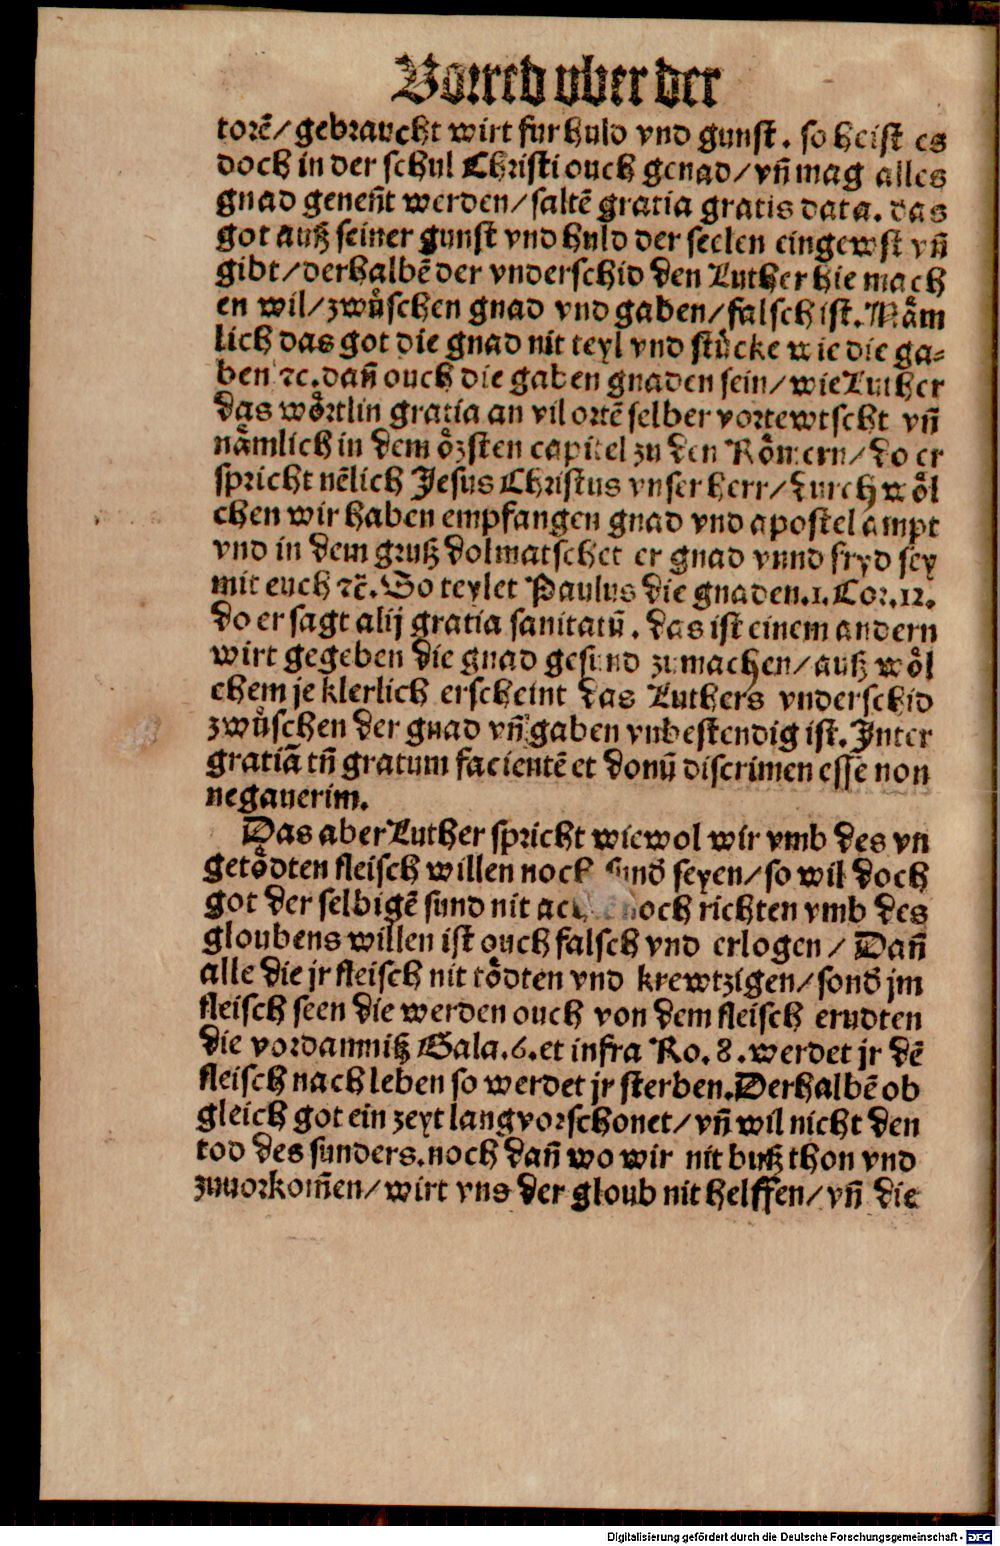 Vorred vber der
torē/ gebraucht wirt fur huld vnd gunst. so heist es
doch in der schul Christi ouch genad/ vñ mag alles
gnad geneñt werden/ saltē gratia gratis data. das
got auß seiner gunst vnd huld der seelen eingewst vñ
gibt/ derhalbē der vnderschid den Luther hie mach
en wil/ zwůschen gnad vnd gaben/ falsch ist. Nåm
lich das got die gnad nit teyl vnd stůcke wie die ga⸗
ben ⁊c. dañ ouch die gaben gnaden sein/ wie Luther
das wǒrtlin gratia an vil ortē selber vortewtscht vñ
nåmlich in dem ǒzsten capitel zu den Rǒmern/ do er
spricht nēlich Jesus Christus vnser herr/ durch wǒl
chen wir haben empfangen gnad vnd apostel ampt
vnd in dem gruß dolmatschet er gnad vnnd fryd sey
mit euch ⁊c̄. So teylet Paulus die gnaden. 1. Cor. 12.
do er sagt alij gratia sanitatū. das ist einem andern
wirt gegeben die gnad gesund zumachen/ auß wǒl
chem je klerlich erscheint das Luthers vnderschid
zwůschen der gnad vñ gaben vnbestendig ist. Inter
gratiā tñ gratum facientē et donū discrimen esse non
negauerim.
Das aber Luther spricht wiewol wir vmb des vn
getǒdten fleisch willen noch sund seyen/ so wil doch
got der selbigē sund nit noch richten vmb des
gloubens willen ist ouch falsch vnd erlogen/ Dañ
alle die jr fleisch nit tǒdten vnd krewtzigen/ sond̄ jm
fleisch seen die werden ouch von dem fleisch erndten
die vordamniß Gala. 6. et infra Ro. 8. werdet jr dē
fleisch nach leben so werdet jr sterben. Derhalbē ob
gleich got ein zeyt lang vorschonet/ vñ wil nicht den
tod des sunders. noch dañ wo wir nit buß thon vnd
zuuorkom̄en/ wirt vns der gloub nit helffen/ vñ die
Digitalisierung gefördert durch die Deutsche Forschungsgemeinschaft - DFG